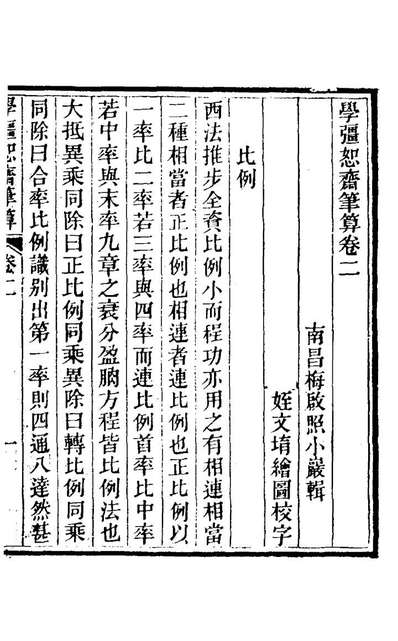 學彊恕齋筆算卷二
南昌梅啟照小巖輯
姪文堉繪圖校字
比例
西法推步全資比例小而程功亦用之有相連相當
二種相當者正比例也相連者連比例也正比例以
一率比二率若三率與四率而連比例首率比中率
若中率與末率九章之衰分盈朒方程皆比例法也
大抵異乘同除曰正比例同乘異除曰轉比例同乘
同除曰合率比例識别出第一率則四通八達然甚
學彊恕齋筆算 卷二 一